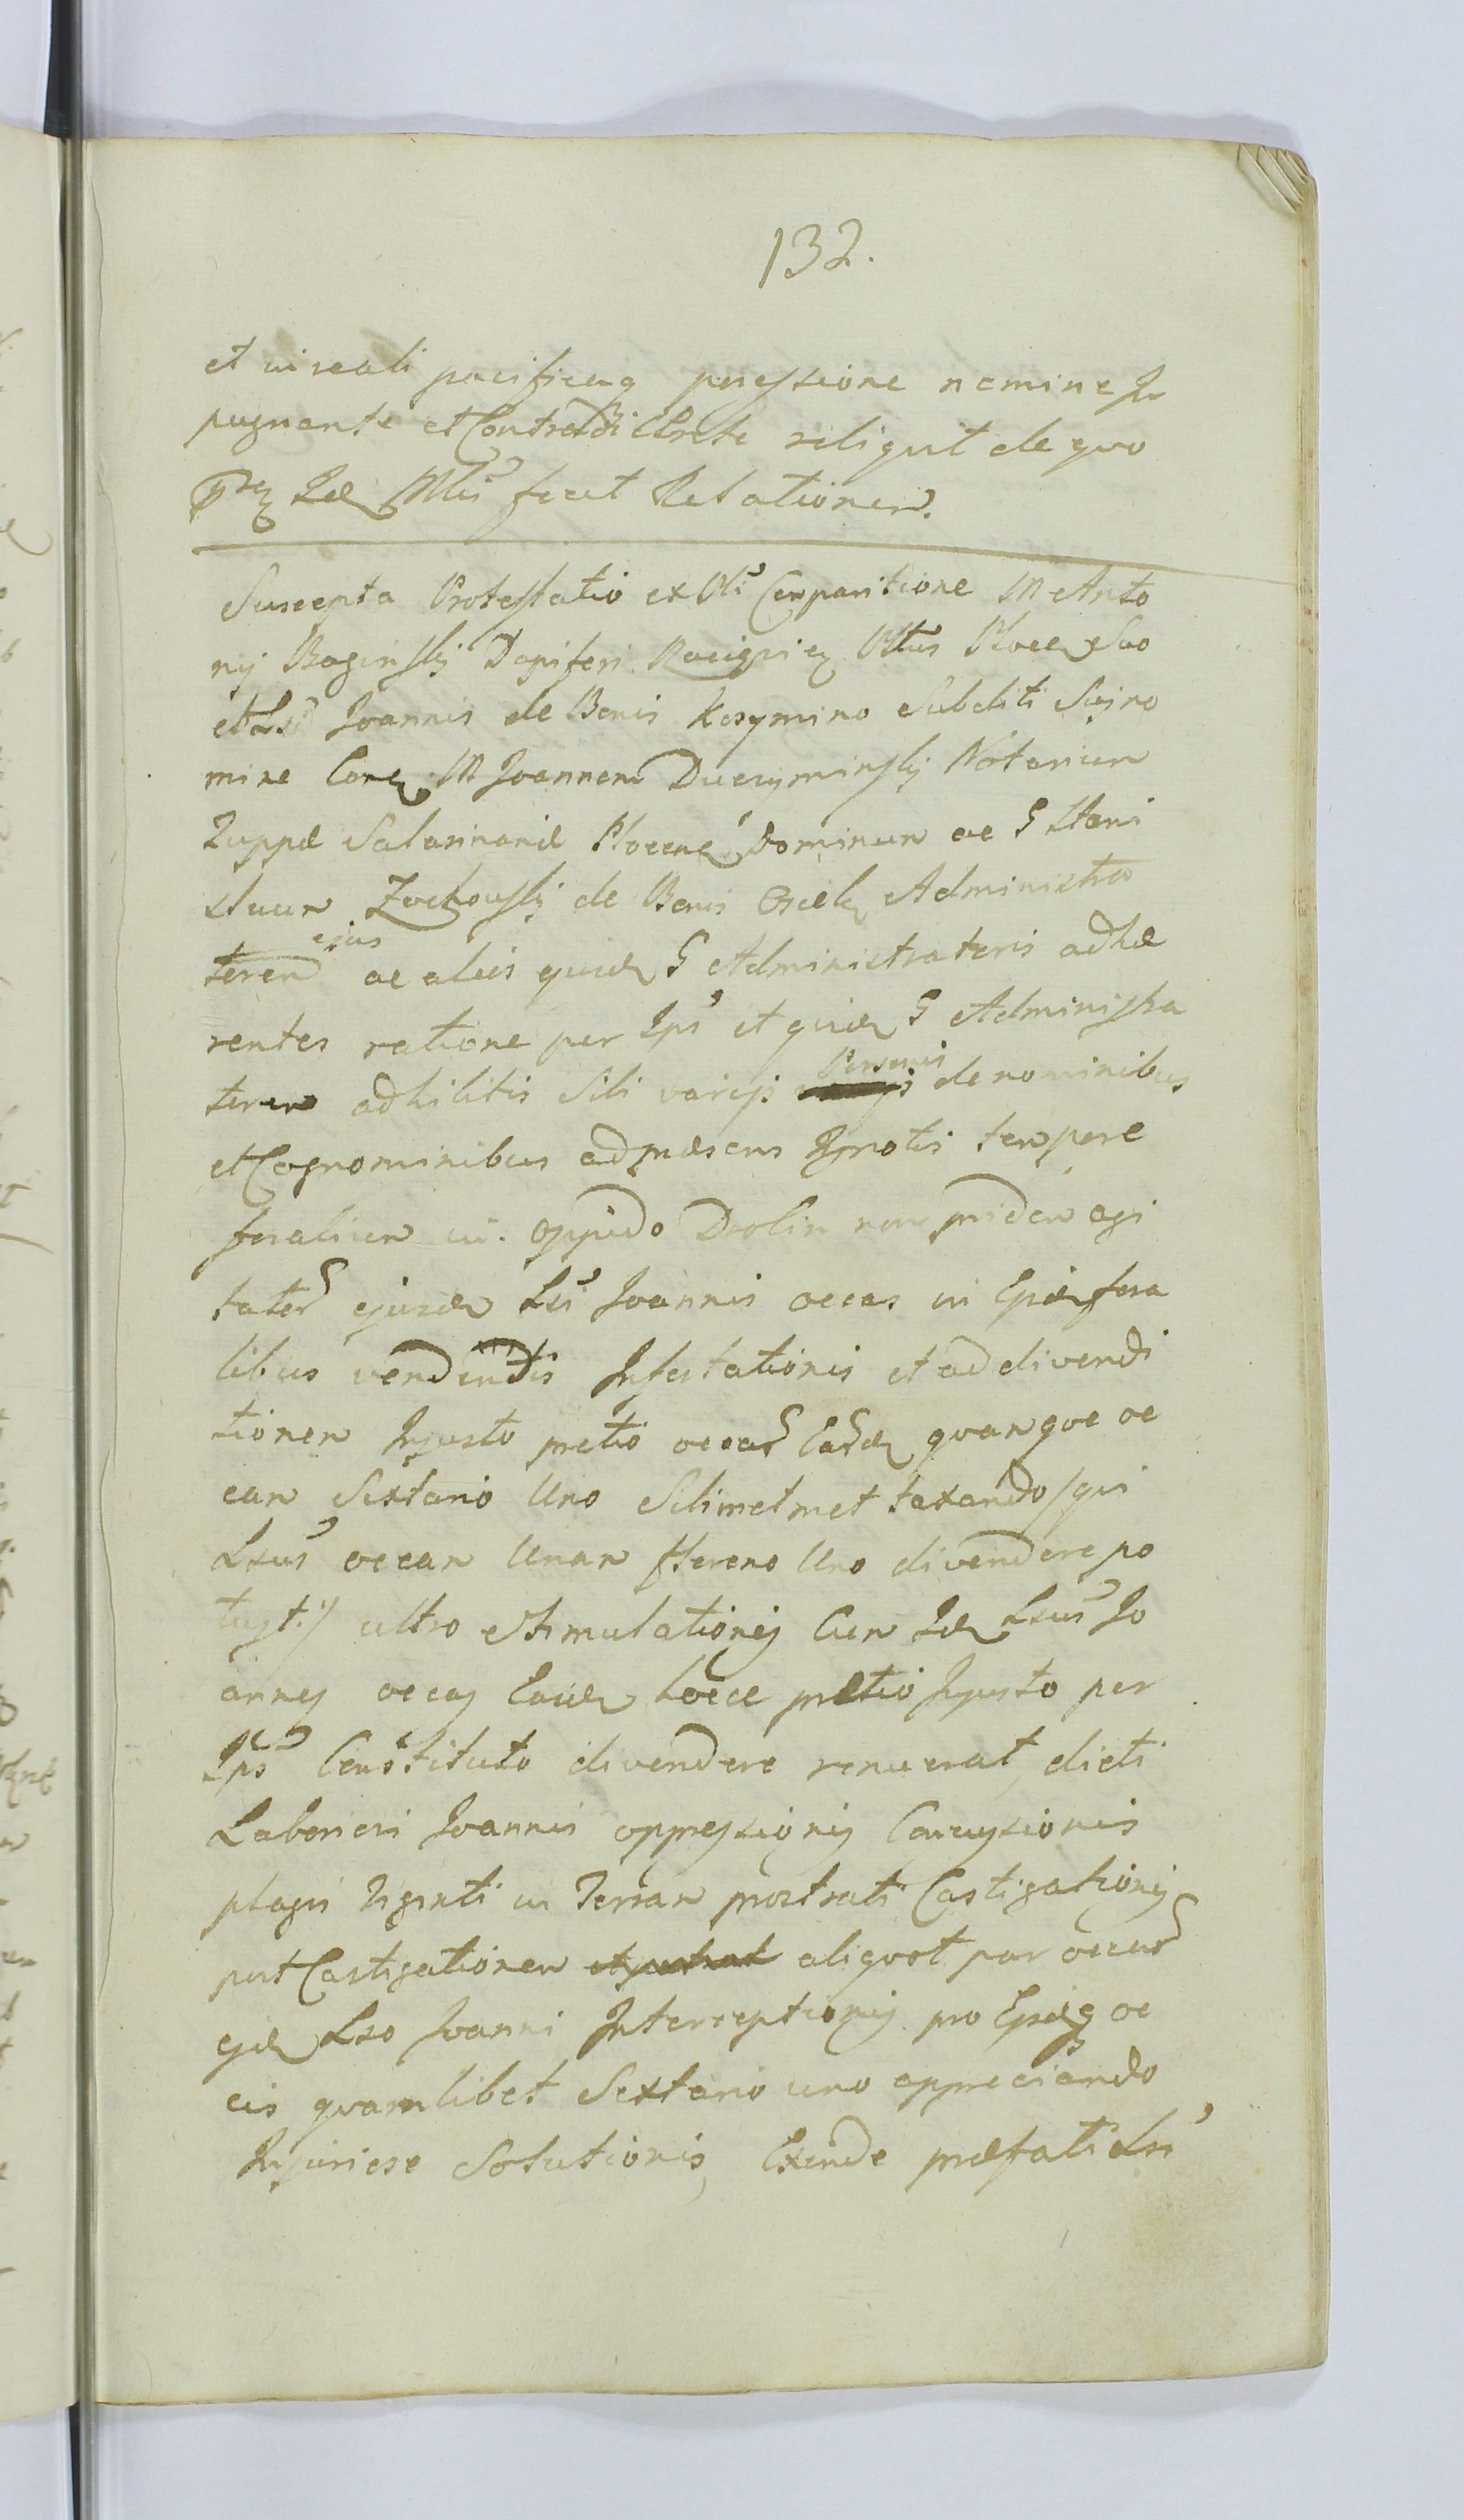 132.
et in reali pacificaq possessione nemine Im
pugnante et Contradicente reliquit de quo
Idem Mlis fecit Relationem.
Suscepta Protestatio ex Comparitione M Anto
nij Baginskij Dapiferi Raciąż Ploceń Suo
et Joannis de Bonis Kosymino Subditi Sui no
mine Cora M Joannem Duczyminskij Notarium
Zuppæ Salarinariæ Plocens Dominum ac G Stani
slaum Zochowskij de Bonis Administra
torem ejus ac aliis quidem G Administratoris adhæ
rentes ratione per Ips et quidem G Administra
torem adhibitis Sibi varijs Personis de nominibus
et Cognominibus ad præsens Ignotis tempore
foralium in oppido Drobin non pridem agi
tator ejusdem Lsi Joannis occas in Epidem fora
libus vendendis Infestationis et ad divendi
tionem Injusto pretio occar Earde quamque oc
cam Sextario Uno Sibimetmet taxando /qui
Lsus occam Unam fforeno Uno divendere po
tuyt:/ ultro Stimulationis Cum Idem Lsus Jo
annes occas Easdem hocce prætio Injusto per
Ips Constituto divendere renuerat, dicti
Laboriosi Joannis oppressionis Concussionis
plagis Viginti in Terram prostrati Castigationis
post Castigationem aliquot par occar
ejde Lso Joanni Interceptionis pro oc
cis quamlibet Sextario uno appreciando
Injuriose Solutionis, Exinde præfati Lsi